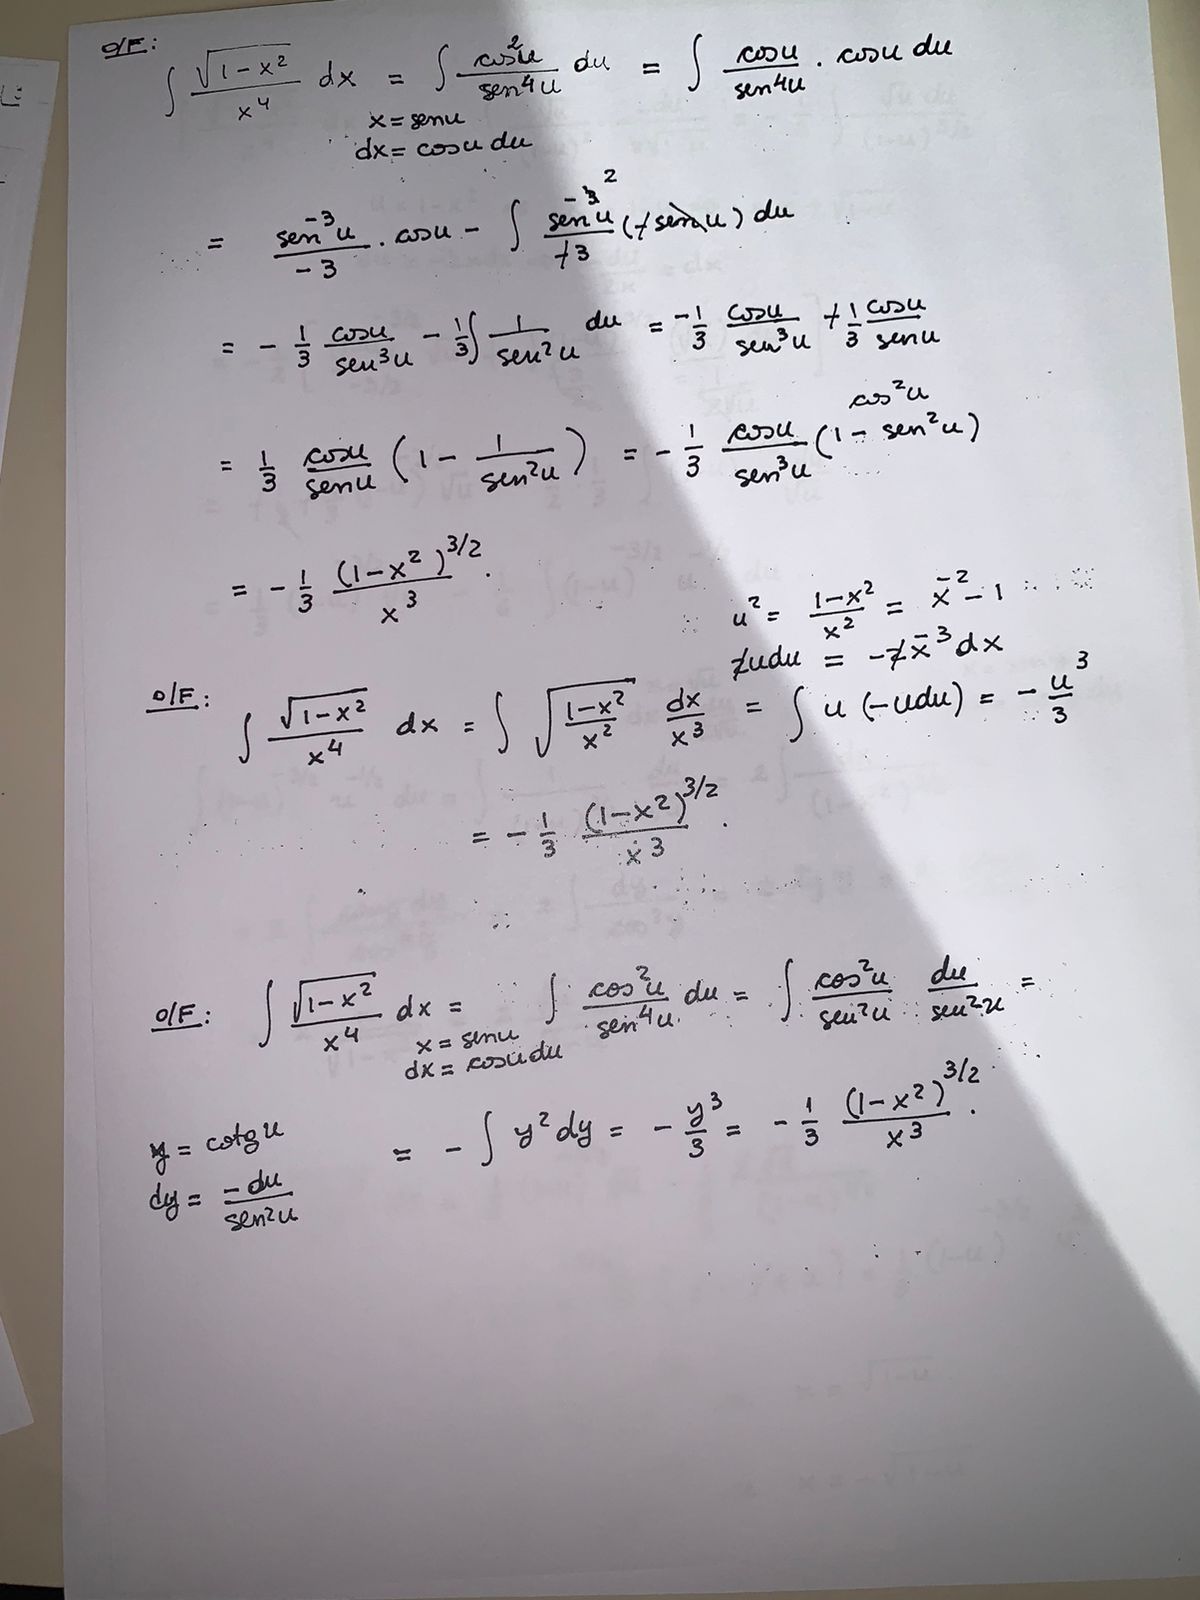 O/F:
∫ √(1-x²)/x⁴ dx = ∫ cos²u/sen⁴u du = ∫ cosu/sen⁴u . cosu du
x = senu
dx = cosu du
= sen⁻³u/-3 . cosu - ∫ sen⁻²u/+3 (+senu) du
= -1/3 cosu/sen³u - 1/3 ∫ 1/sen²u du = -1/3 cosu/sen³u + 1/3 cosu/senu
cos²u
= 1/3 cosu/senu (1 - 1/sen²u) = -1/3 cosu/sen³u (1 - sen²u)
= -1/3 (1-x²)^3/2 / x³ .
u² = 1-x²/x² = x⁻² - 1
2udu = -2x⁻³dx
O/F: ∫ √(1-x²)/x⁴ dx = ∫ √(1-x²/x²) dx/x³ = ∫ u (-udu) = -u³/3
= -1/3 (1-x²)^3/2 / x³ .
O/F: ∫ √(1-x²)/x⁴ dx = ∫ cos²u/sen⁴u du = ∫ cos²u/sen²u du/sen²u =
x = senu
dx = cosu du
y = cotgu
= -∫ y²dy = -y³/3 = -1/3 (1-x²)^3/2 / x³ .
dy = -du/sen²u